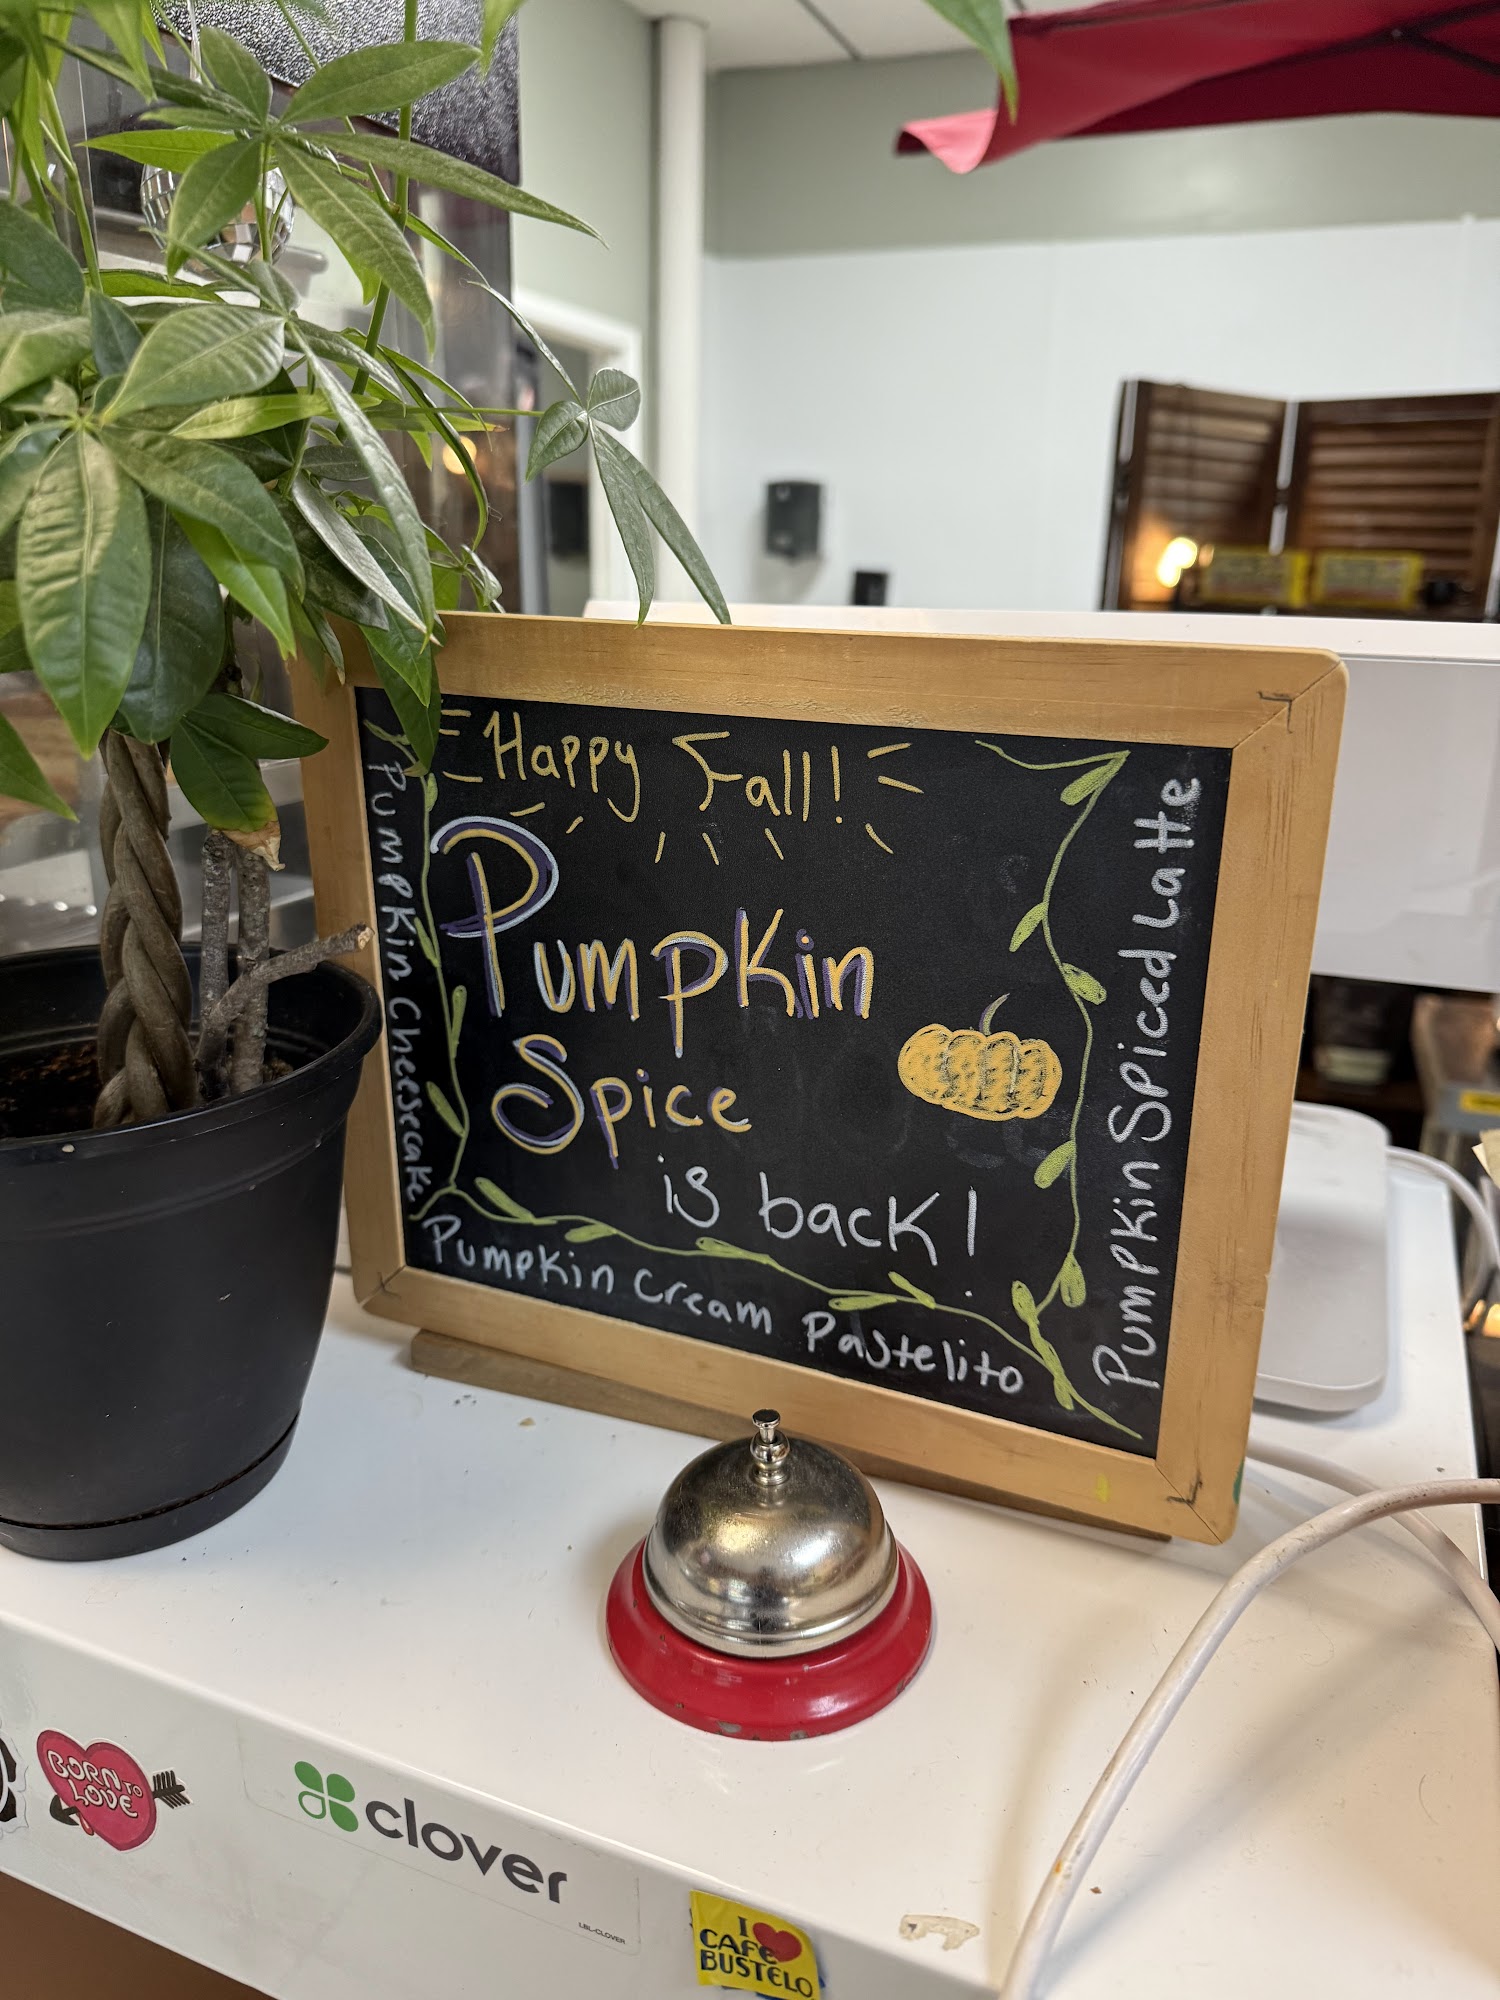 Happy Fall!
Pumpkin
Spice
is back!
Pumpkin Cheesecake
Pumpkin Cream Pastelito
Pumpkin Spiced Latte
BORN TO
LOVE
clover
LBL-CLOVER
I
CAFE
BUSTELO